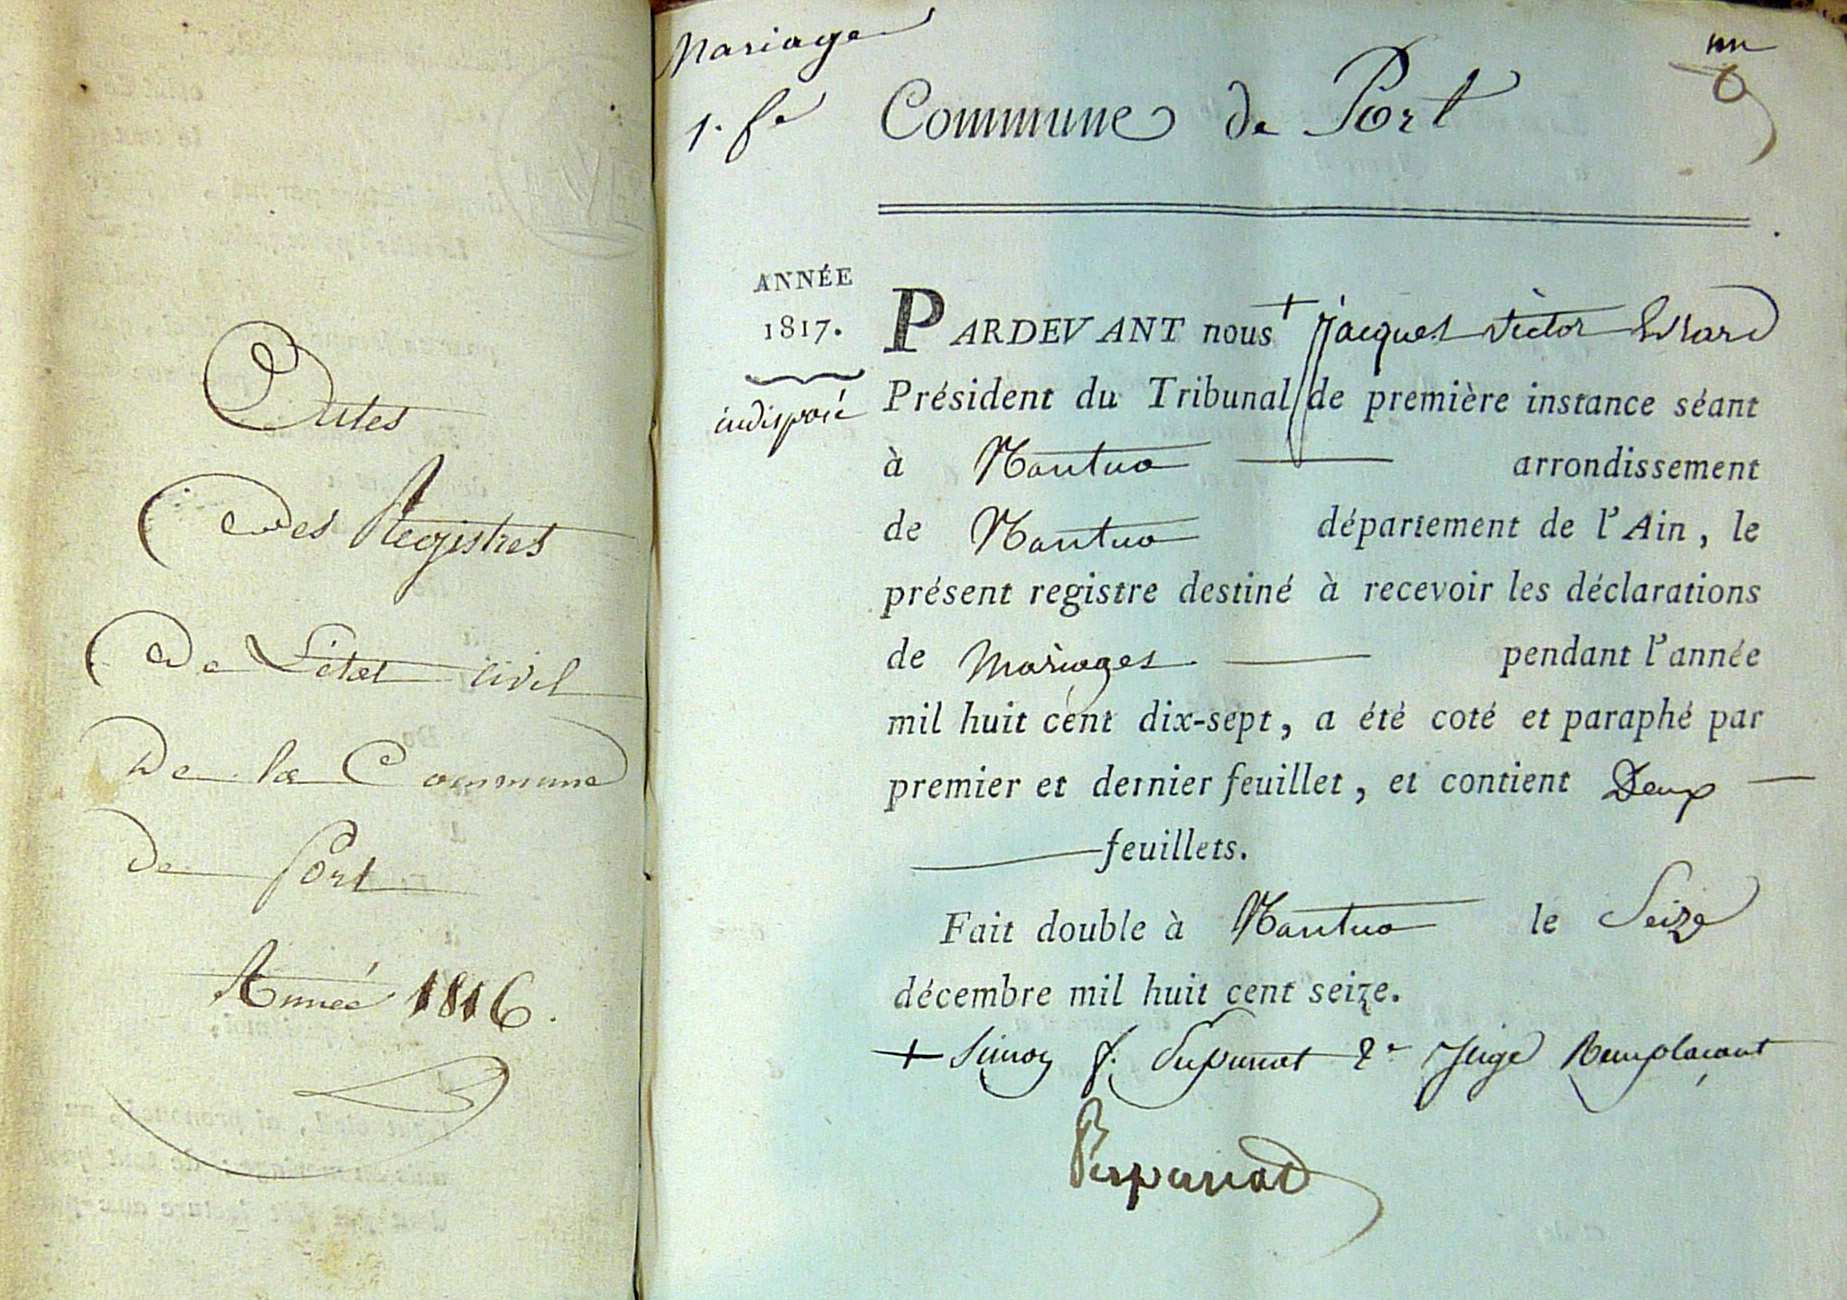 Dates
des Registres
De L'état civil
De la Commune
de Port
Année 1816.
Mariage
1. fe
Commune de Port
ANNÉE
1817.
indisposé
PARDEVANT nous + jacques victor
Président du Tribunal de première instance séant
à Nantua arrondissement
de Nantua département de l'Ain, le
présent registre destiné à recevoir les déclarations
de Mariages pendant l'année
mil huit cent dix-sept, a été coté et paraphé par
premier et dernier feuillet, et contient Deux
feuillets.
Fait double à Nantua le Seize
décembre mil huit cent seize.
+ Simon f. 2e Juge Remplacant